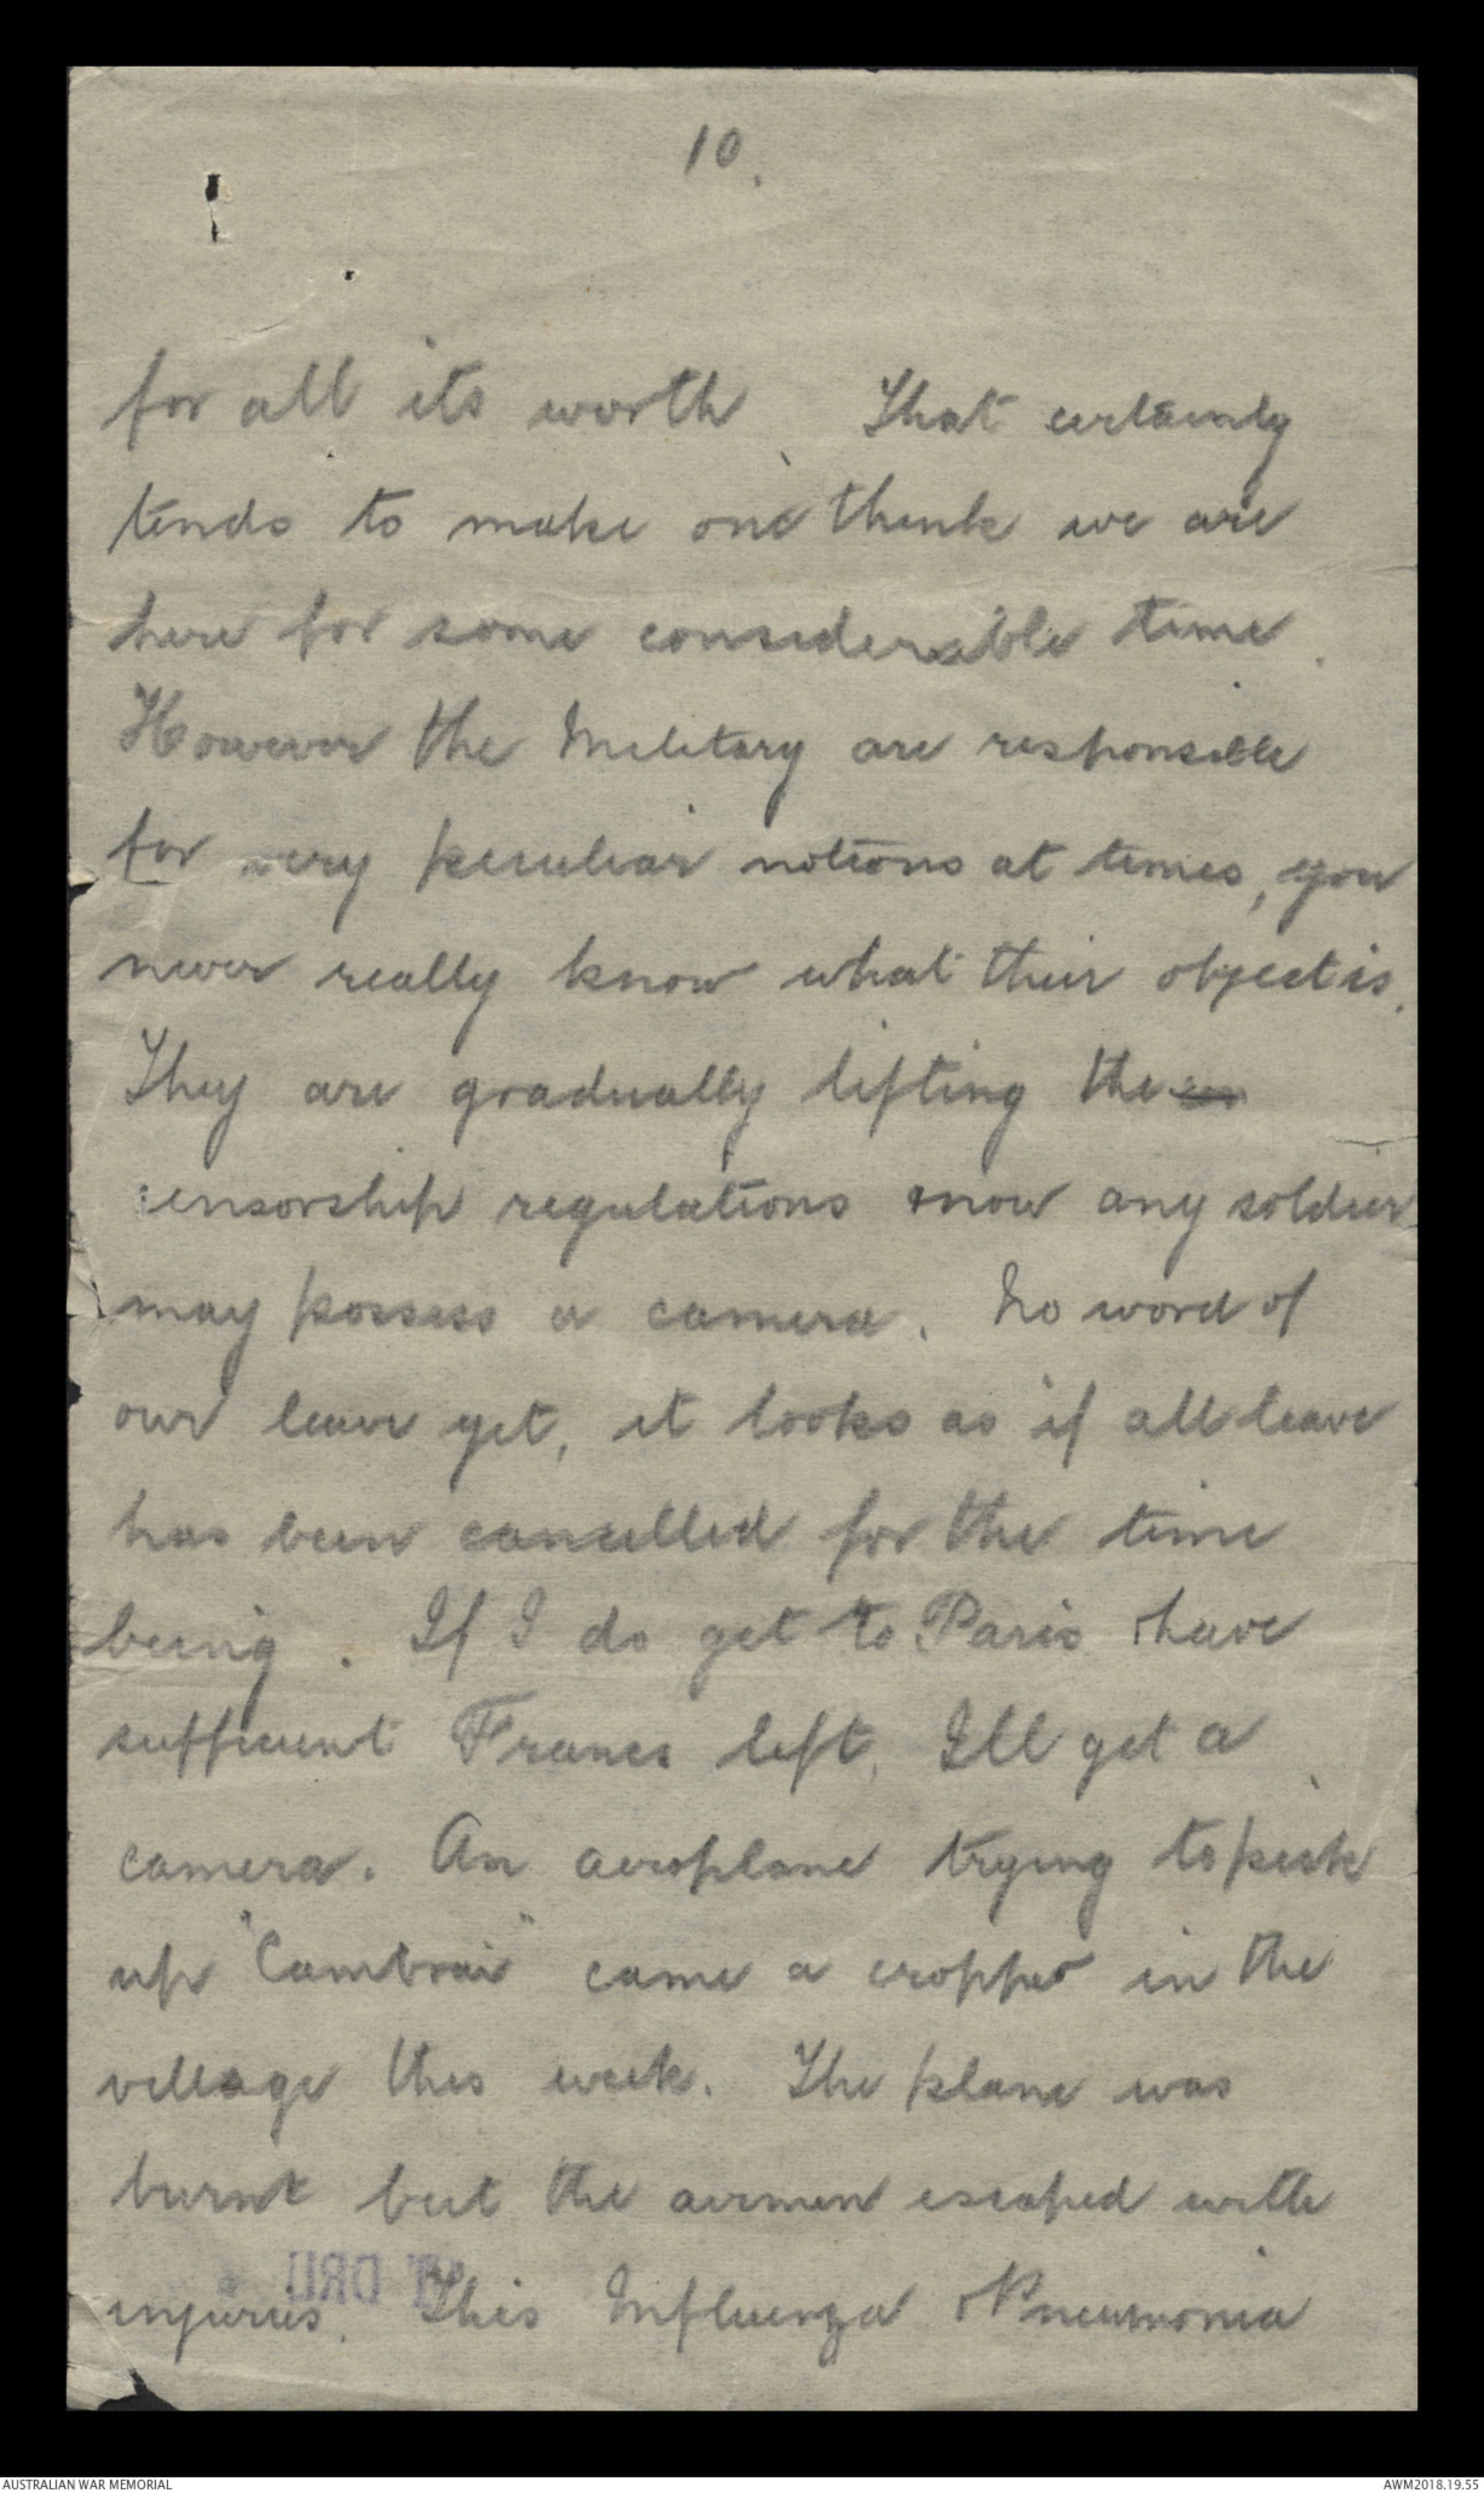 10.
for all its worth. That certainly
tends to make one think we are
here for some considerable time.
However the Military are responsible
for very peculiar notions at times, you
never really know what their object is.
They are gradually lifting the
censorship regulations & now any soldier
may possess a camera. No word of
our leave yet, it looks as if all leave
has been cancelled for the time
being. If I do get to Paris & have
sufficient Francs left, Ill get a
camera. An aeroplane trying to pick
up "Cambrai" came a cropper in the
village this week. The plane was
burnt but the airmen escaped with
injuries. This Influenza & Pneumonia
AUSTRALIAN WAR MEMORIAL
AWM2018.19.55